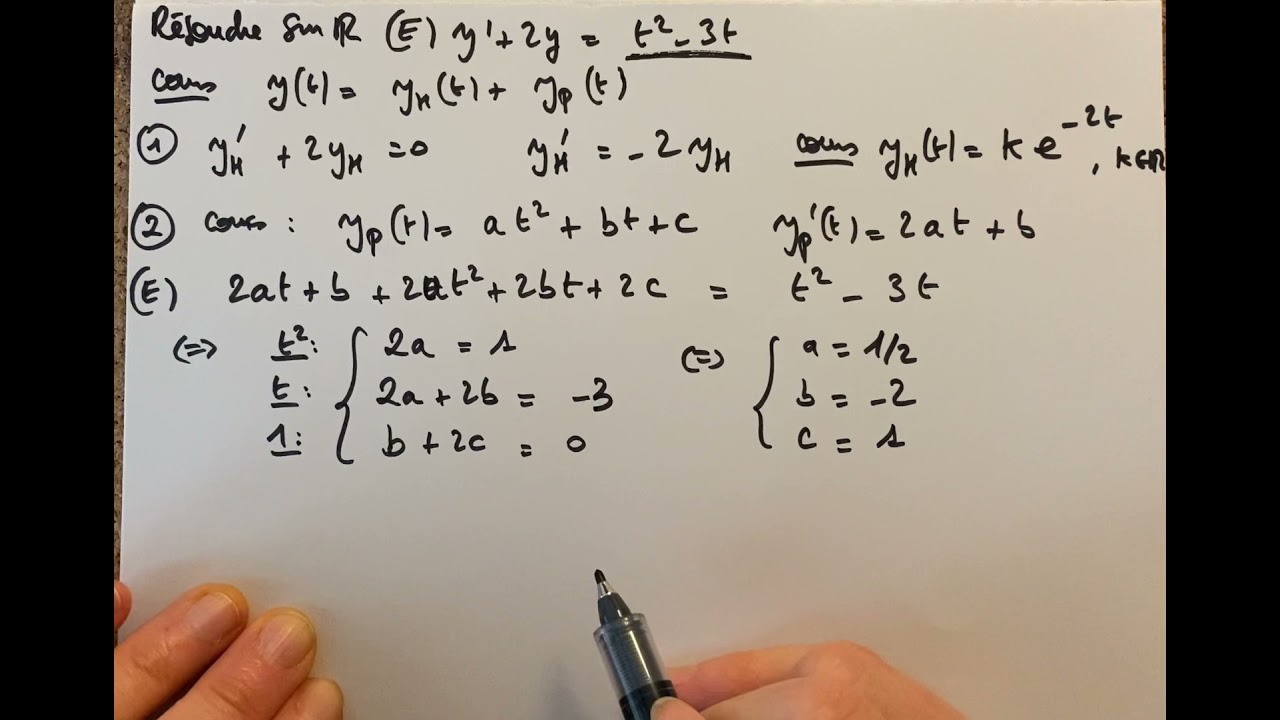 Résoudre sur ℝ (E) y' + 2y = t² - 3t
cours y(t) = y_H(t) + y_p(t)
① y_H' + 2y_H = 0 y_H' = -2y_H cours y_H(t) = k e^{-2t}, k∈ℝ
② cours : y_p(t) = at² + bt + c y_p'(t) = 2at + b
(E) 2at + b + 2at² + 2bt + 2c = t² - 3t
⟺ t²: { 2a = 1 ⟺ { a = 1/2
t: 2a + 2b = -3 b = -2
1: b + 2c = 0 c = 1